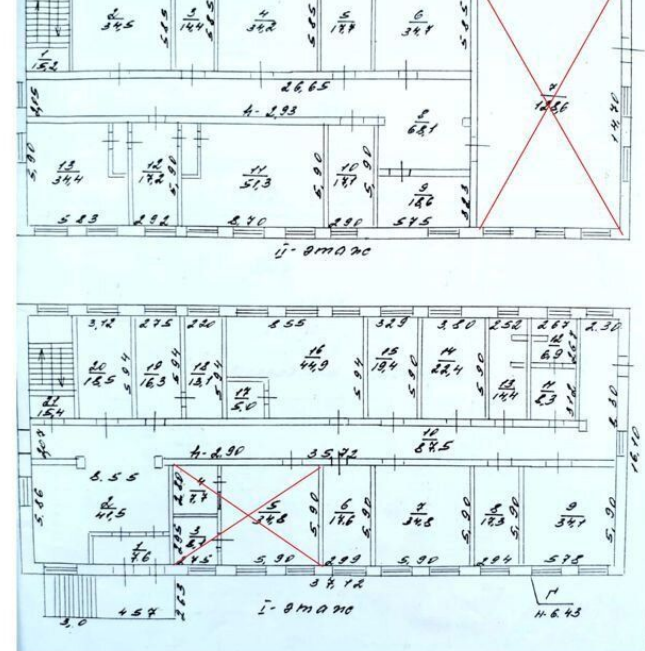 2 34,5
3 14,4
4 34,2
5 17,7
6 34,7
5,85
5,85
5,85
1 15,2
26,65
h- 2,93
8 68,1
7 128,6
14,70
5,90
13 34,4
12 17,2
5,90
11 51,3
5,90
10 17,1
5,90
9 18,6
3,23
5,83
2,92
8,70
2,90
5,75
II- этаж
3,12
2,75
2,20
8,55
3,29
3,80
2,52
2,67
2,30
20 18,5
5,94
19 16,3
5,94
18 13,1
5,94
16 44,9
5,94
15 19,4
5,90
14 22,4
5,90
13 14,4
12 6,9
2,67
11 8,3
3,12
17 5,0
21 15,4
8,30
16,10
h- 2,90
35,72
10 87,5
8.55
5,86
2 47,5
2,80
4 7,7
5 34,8
5,90
6 17,6
5,90
7 34,8
5,90
8 17,3
5,90
9 34,1
5,90
2,95
3 8,1
1 7,6
2,75
5,90
2,99
5,90
2,94
5,78
37,12
2,63
3,0
4 5 7
I- этаж
Г
H-6.43